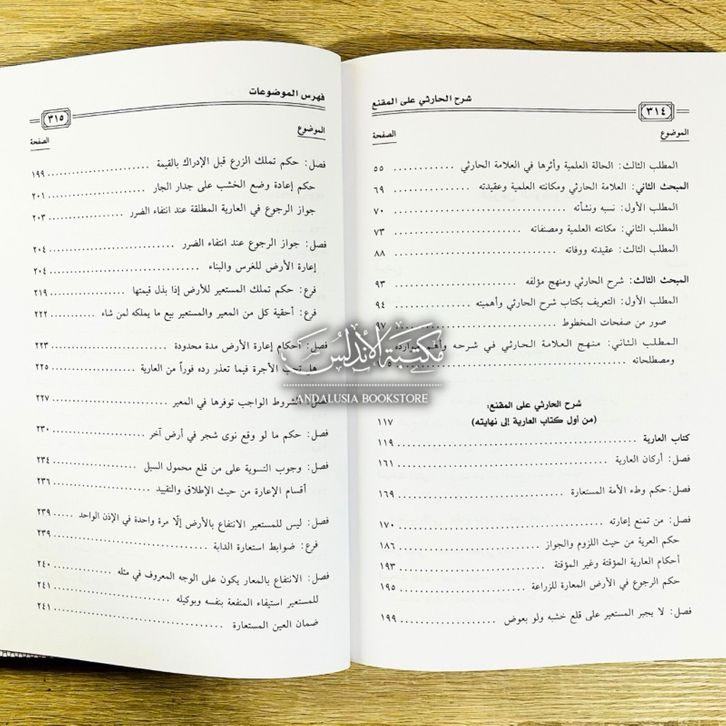 ٣١٤
شرح الحارثي على المقنع
الموضوع الصفحة
المطلب الثالث: الحالة العلمية وأثرها في العلامة الحارثي ............ ٥٥
المبحث الثاني: العلامة الحارثي ومكانته العلمية وعقيدته ............ ٦٩
المطلب الأول: نسبه ونشأته ............ ٧٠
المطلب الثاني: مكانته العلمية ومصنفاته ............ ٧٣
المطلب الثالث: عقيدته ووفاته ............ ٨٨
المبحث الثالث: شرح الحارثي ومنهج مؤلفه ............ ٩٣
المطلب الأول: التعريف بكتاب شرح الحارثي وأهميته ............ ٩٤
صور من صفحات المخطوط ............ ٩٧
المطلب الثاني: منهج العلامة الحارثي في شرحه وأهم موارده
ومصطلحاته
شرح الحارثي على المقنع:
(من أول كتاب العارية إلى نهايته) ١١٧
كتاب العارية ............ ١١٩
فصل: أركان العارية ............ ١٦١
فصل: حكم وطء الأمة المستعارة ............ ١٦٩
فصل: من تمنع إعارته ............ ١٧٠
حكم العرية من حيث اللزوم والجواز ............ ١٨٦
أحكام العارية المؤقتة وغير المؤقتة ............ ١٩٣
حكم الرجوع في الأرض المعارة للزراعة ............ ١٩٥
فصل: لا يجبر المستعير على قلع خشبه ولو بعوض ............ ١٩٩
فهرس الموضوعات
٣١٥
الموضوع الصفحة
فصل: حكم تملك الزرع قبل الإدراك بالقيمة ............ ١٩٩
حكم إعادة وضع الخشب على جدار الجار ............ ٢٠١
جواز الرجوع في العارية المطلقة عند انتفاء الضرر ............ ٢٠٣
فصل: جواز الرجوع عند انتفاء الضرر ............ ٢٠٤
إعارة الأرض للغرس والبناء ............ ٢٠٤
فرع: حكم تملك المستعير للأرض إذا بذل قيمتها ............ ٢١٩
فرع: أحقية كل من المعير والمستعير بيع ما يملكه لمن شاء ............ ٢٢٢
فصل: أحكام إعارة الأرض مدة محدودة ............ ٢٢٣
هل تجب الأجرة فيما تعذر رده فوراً من العارية ............ ٢٢٥
فصل: الشروط الواجب توفرها في المعير ............ ٢٢٧
فصل: حكم ما لو وقع نوى شجر في أرض آخر ............ ٢٣٠
فصل: وجوب التسوية على من قلع محمول السيل ............ ٢٣٤
أقسام الإعارة من حيث الإطلاق والتقييد ............ ٢٣٦
فصل: ليس للمستعير الانتفاع بالأرض إلّا مرة واحدة في الإذن الواحد ............ ٢٣٩
فرع: ضوابط استعارة الدابة ............ ٢٣٩
فصل: الانتفاع بالمعار يكون على الوجه المعروف في مثله ............ ٢٤٠
للمستعير استيفاء المنفعة بنفسه وبوكيله ............ ٢٤١
ضمان العين المستعارة ............ ٢٤١
مكتبة الأندلس
ANDALUSIA BOOKSTORE